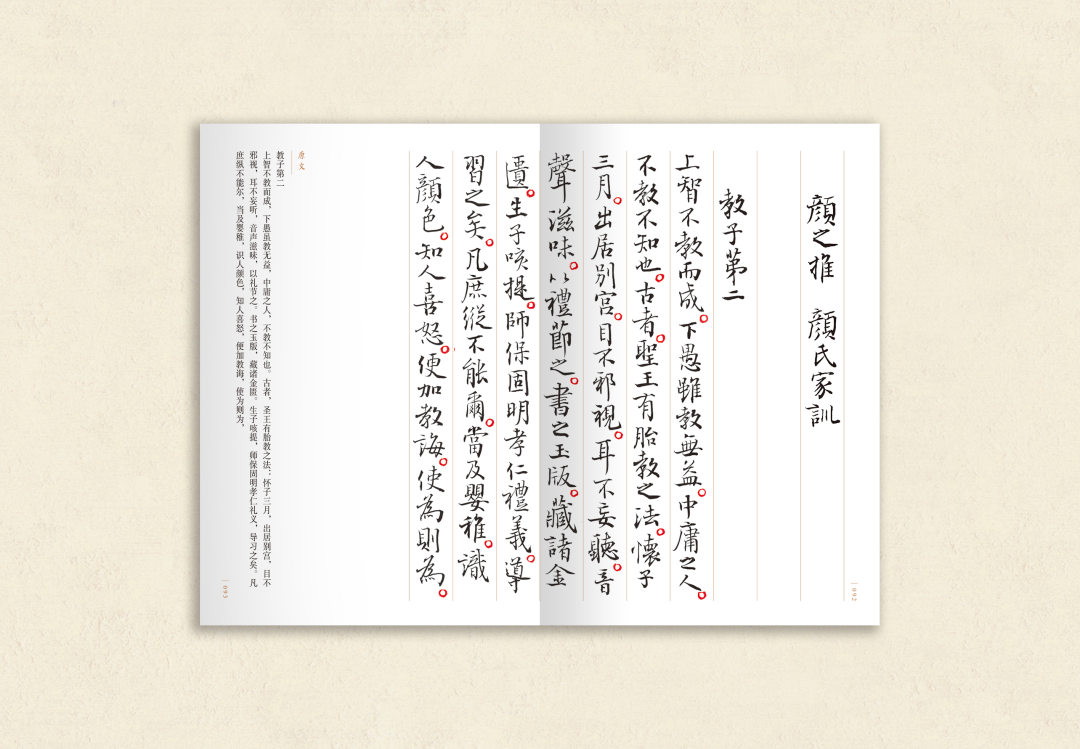 顔之推　顔氏家訓
教子第二
上智不教而成。下愚雖教無益。中庸之人。
不教不知也。古者。聖王有胎教之法。懷子
三月。出居別宫。目不邪視。耳不妄聽。音
聲滋味。以禮節之。書之玉版。藏諸金
匱。生子咳提。師保固明孝仁禮義。導
習之矣。凡庶縱不能爾。當及嬰稚。識
人顔色。知人喜怒。便加教誨。使為則為。
092
原文
教子第二
上智不教而成，下愚虽教无益，中庸之人，不教不知也。古者，圣王有胎教之法：怀子三月，出居别宫，目不
邪视，耳不妄听，音声滋味，以礼节之。书之玉版，藏诸金匮。生子咳提，师保固明孝仁礼义，导习之矣。凡
庶纵不能尔，当及婴稚，识人颜色，知人喜怒，便加教诲，使为则为，
093